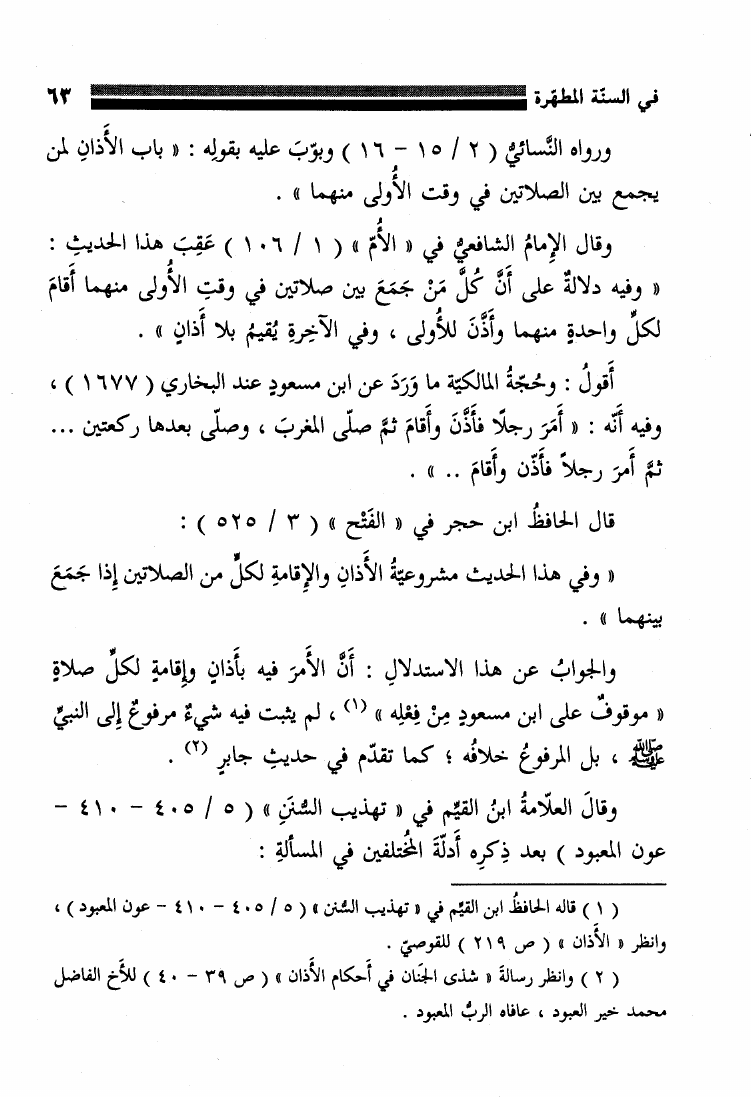 في السنّة المطهّرة ٦٣
ورواه النَّسائيُّ ( ٢ / ١٥ – ١٦ ) وبوّبَ عليه بقولِه : « باب الأَذانِ لمن
يجمع بين الصلاتين في وقت الأُولى منهما » .
وقال الإِمامُ الشافعيُّ في « الأُمّ » ( ١ / ١٠٦ ) عَقِبَ هذا الحديثِ :
« وفيه دلالةٌ على أَنَّ كُلَّ مَنْ جَمَعَ بين صلاتين في وقتِ الأُولى منهما أَقامَ
لكلٍّ واحدةٍ منهما وأَذَّنَ للأُولى ، وفي الآخِرةِ يُقيمُ بلا أَذانٍ » .
أَقولُ : وحُجّةُ المالكيّة ما وَرَدَ عن ابن مسعودٍ عند البخاري ( ١٦٧٧ ) ،
وفيه أَنّه : « أَمَرَ رجلًا فأَذَّنَ وأَقامَ ثمَّ صلّى المغربَ ، وصلّى بعدها ركعتين ...
ثمَّ أَمرَ رجلاً فأَذّن وأَقامَ .. » .
قال الحافظُ ابن حجر في « الفَتْح » ( ٣ / ٥٢٥ ) :
« وفي هذا الحديث مشروعيّةُ الأَذانِ والإِقامةِ لكلٍّ من الصلاتين إِذا جَمَعَ
بينهما » .
والجوابُ عن هذا الاستدلالِ : أَنَّ الأَمرَ فيه بأَذانٍ وإِقامةٍ لكلِّ صلاةٍ
« موقوفٌ على ابن مسعودٍ مِنْ فِعْلِه » (١) ، لم يثبت فيه شيءٌ مرفوعٌ إِلى النبيِّ
ﷺ ، بل المرفوعُ خلافُه ؛ كما تقدّم في حديثِ جابرٍ (٢) .
وقالَ العلّامةُ ابنُ القيِّم في « تهذيب السُّنَنِ » ( ٥ / ٤٠٥ – ٤١٠ –
عون المعبود ) بعد ذِكرِه أَدلّةَ المُختلفين في المسألةِ :
( ١ ) قاله الحافظُ ابن القيِّم في « تهذيب السُّنن » ( ٥ / ٤٠٥ – ٤١٠ – عون المعبود ) ،
وانظر « الأَذان » ( ص ٢١٩ ) للقوصيّ .
( ٢ ) وانظر رسالةَ « شذى الجَنان في أَحكام الأَذان » ( ص ٣٩ – ٤٠ ) للأَخ الفاضل
محمد خير العبود ، عافاه الربُّ المعبود .